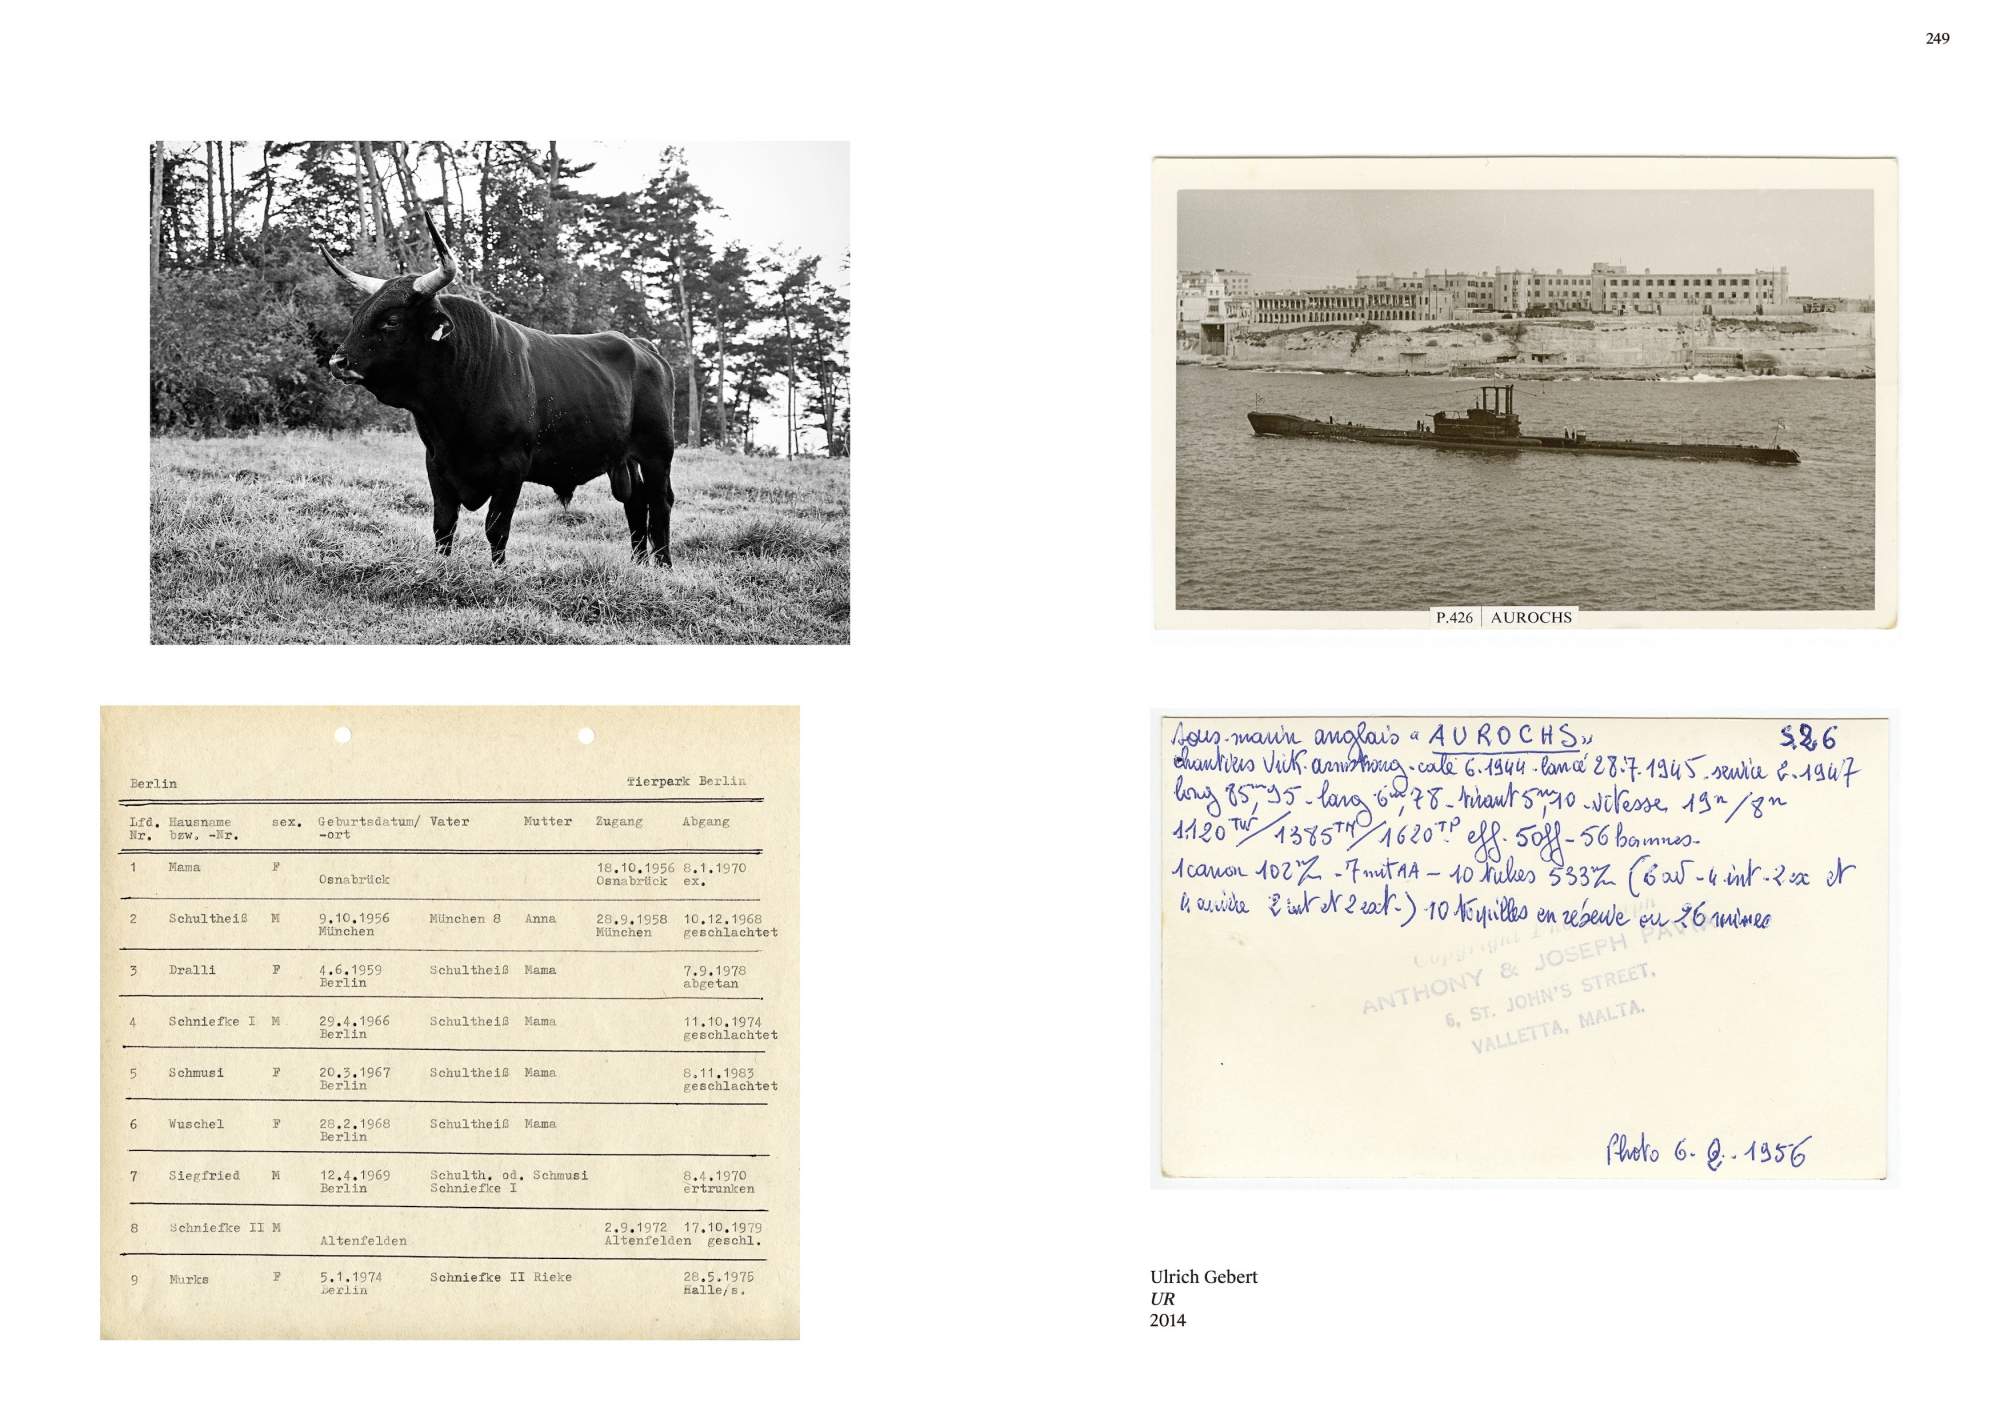 249
P.426 | AUROCHS
Berlin Tierpark Berlin
Lfd. Hausname sex. Geburtsdatum/ Vater Mutter Zugang Abgang
Nr. bzw. -Nr. -ort
1 Mama F 18.10.1956 8.1.1970
Osnabrück Osnabrück ex.
2 Schultheiß M 9.10.1956 München 8 Anna 28.9.1958 10.12.1968
München München geschlachtet
3 Dralli F 4.6.1959 Schultheiß Mama 7.9.1978
Berlin abgetan
4 Schniefke I M 29.4.1966 Schultheiß Mama 11.10.1974
Berlin geschlachtet
5 Schmusi F 20.3.1967 Schultheiß Mama 8.11.1983
Berlin geschlachtet
6 Wuschel F 28.2.1968 Schultheiß Mama
Berlin
7 Siegfried M 12.4.1969 Schulth. od. Schmusi 8.4.1970
Berlin Schniefke I ertrunken
8 Schniefke II M 2.9.1972 17.10.1979
Altenfelden Altenfelden geschl.
9 Murks F 5.1.1974 Schniefke II Rieke 28.5.1975
Berlin Halle/S.
Sous-marin anglais "AUROCHS" S26
chantiers Vick. armstrong - cale 6.1944 - lancé 28.7.1945 - service 2.1947
long 85m,95 - larg 6m,78 - tirant 5m,10 - vitesse 19n/8n
1120TW/1385TN/1620TP eff. 5off - 56 hommes-
1 canon 102 - 7 mit AA - 10 tubes 533 (6 av - 4 int - 2 ex et
4 arrière 2 int et 2 ext.) 10 torpilles en réserve ou 26 mines
ANTHONY & JOSEPH
6, ST. JOHN'S STREET,
VALLETTA, MALTA.
Photo 6. 2. 1956
Ulrich Gebert
UR
2014